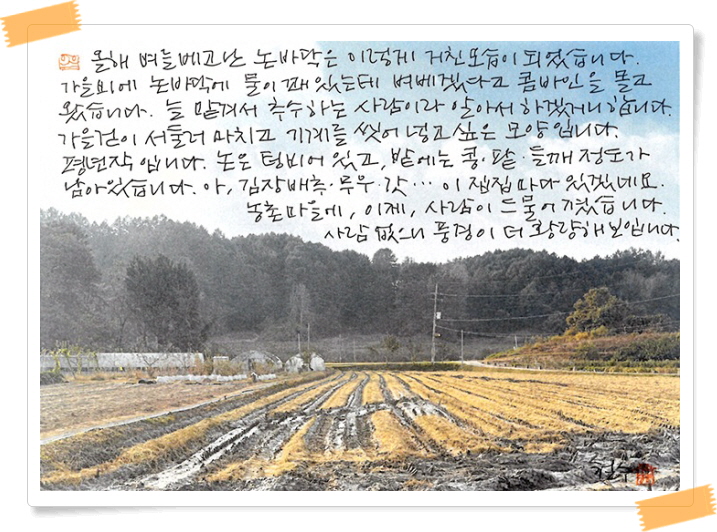 올해 벼를 베고난 논바닥은 이렇게 거친모습이 되었습니다.
가을비에 논바닥에 물이 괘있는데 벼베겠다고 콤바인을 몰고
왔습니다. 늘 맡겨서 추수하는 사람이라 알아서 하겠거니 합니다.
가을걷이 서둘러 마치고 기계를 씻어 넣고 싶은 모양입니다.
평년작입니다. 논은 텅비어 있고, 밭에는 콩·팥·들깨 정도가
남아있습니다. 아, 김장배추·무우·갓… 이 집집마다 있겠네요.
농촌마을에, 이제, 사람이 드물어졌습니다.
사람 없으니 풍경이 더 황량해보입니다.